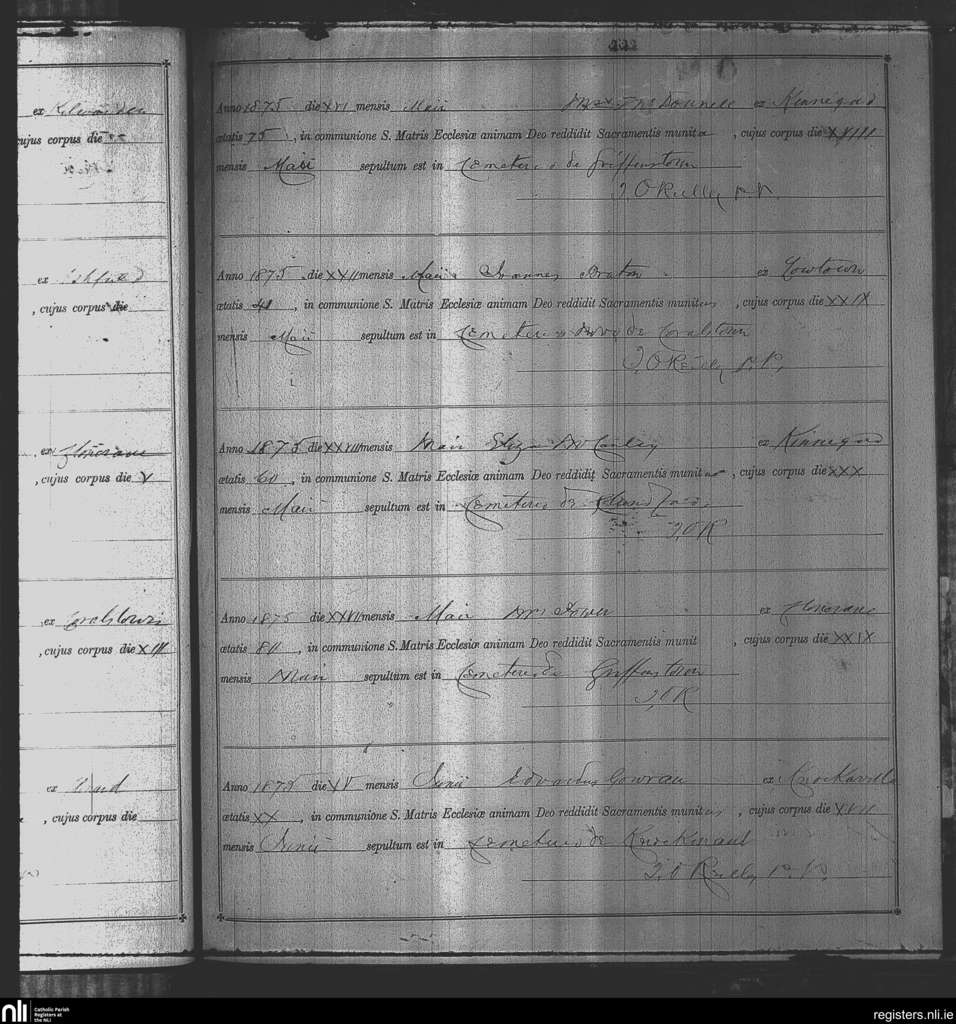 ex
cujus corpus die
ex
, cujus corpus die
, ex
, cujus corpus die V
, ex Coralstown
, cujus corpus die XIII
ex
, cujus corpus die
Anno 1875 die XVI mensis Maii Mrs McDonnell ex Kinnegad
ætatis 75 , in communione S. Matris Ecclesiæ animam Deo reddidit Sacramentis munita , cujus corpus die XVIII
mensis Maii sepultum est in Cemeterio de Griffinstown
J O'Reilly P.P.
Anno 1875 die XXVII mensis Maii Joannes ex Lowtown
ætatis 41 , in communione S. Matris Ecclesiæ animam Deo reddidit Sacramentis munitus , cujus corpus die XXIX
mensis Maii sepultum est in Cemeterio de Coralstown
J, O'Reilly P. P,
Anno 1875 die XXVIII mensis Maii Eliza McCauley ex Kinnegad
ætatis 60 , in communione S. Matris Ecclesiæ animam Deo reddidit Sacramentis munita , cujus corpus die XXX
mensis Maii sepultum est in Cemeterio de
J, O'R
Anno 1875 die XXVII mensis Maii Mrs ex
ætatis 80 , in communione S. Matris Ecclesiæ animam Deo reddidit Sacramentis munit , cujus corpus die XXIX
mensis Maii sepultum est in Cemeterio de Griffinstown
J, O'R
Anno 1875 die XV mensis Junii Edvardus Gowran ex Knockaville
ætatis XX , in communione S. Matris Ecclesiæ animam Deo reddidit Sacramentis munitus , cujus corpus die XVII
mensis Junii sepultum est in Cemeterio de
J, O'Reilly P. P.
nli Catholic Parish
Registers at
the NLI
registers.nli.ie